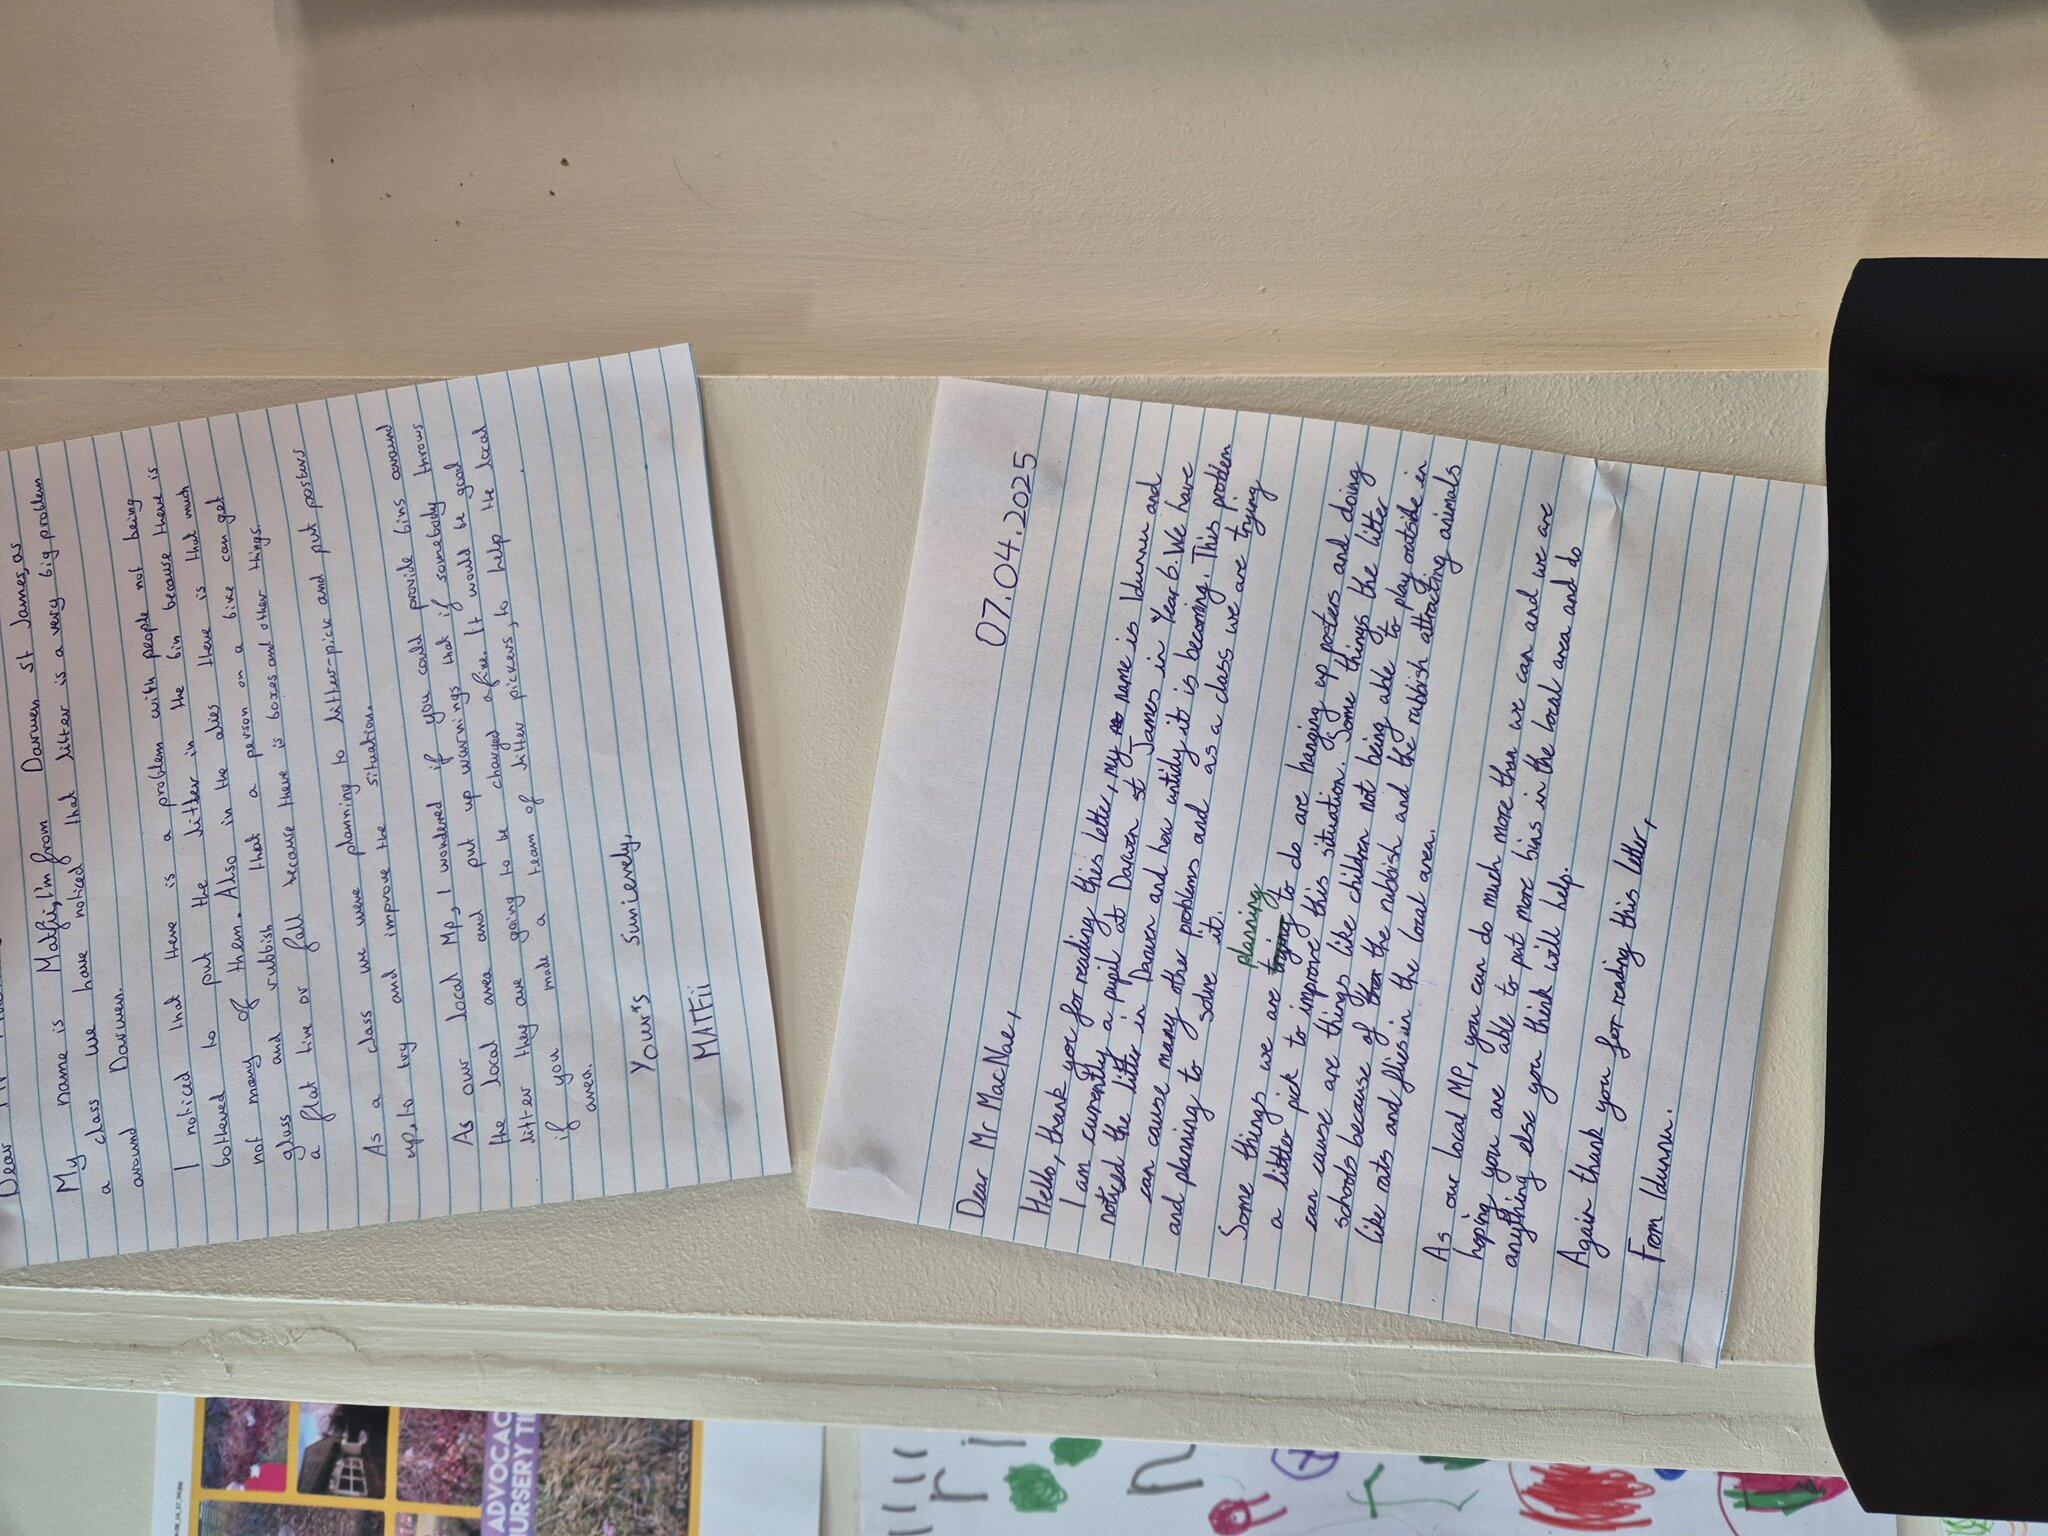 Dear
My name is Matfii, I'm from Darwen st James, as
a class we have noticed that litter is a very big problem
around Darwen.
I noticed that there is a problem with people not being
bothered to put the litter in the bin because there is
not many of them. Also in the alies there is that much
glass and rubbish that a person on a bike can get
a flat tire or fall because there is boxes and other things.
As a class we were planning to litter-pick and put posters
up, to try and improve the situation.
As our local MP, I wondered if you could provide bins around
the local area and put up warnings that if somebody throws
litter they are going to be charged a fine. It would be good
if you made a team of litter pickers, to help the local
area.
Your's Sunicerely,
MATFii
07.04.2025
Dear Mr MacNae,
Hello, thank you for reading this letter, my name is Idunnu and
I am currently a pupil at Darwen st James in Year 6. We have
noticed the litter in Darwen and how untidy it is becoming. This problem
can cause many other problems and as a class we are trying
and planning to solve it.
planning
Some things we are trying to do are hanging up posters and doing
a litter pick to improve this situation. Some things the litter
can cause are things like children not being able to play outside in
schools because of the rubbish and the rubbish attracting animals
like rats and flies in the local area.
As our local MP, you can do much more than we can and we are
hoping you are able to put more bins in the local area and do
anything else you think will help.
Again thank you for reading this letter,
From Idunnu.
ADVOCAC
NURSERY TI
PIC•COLL